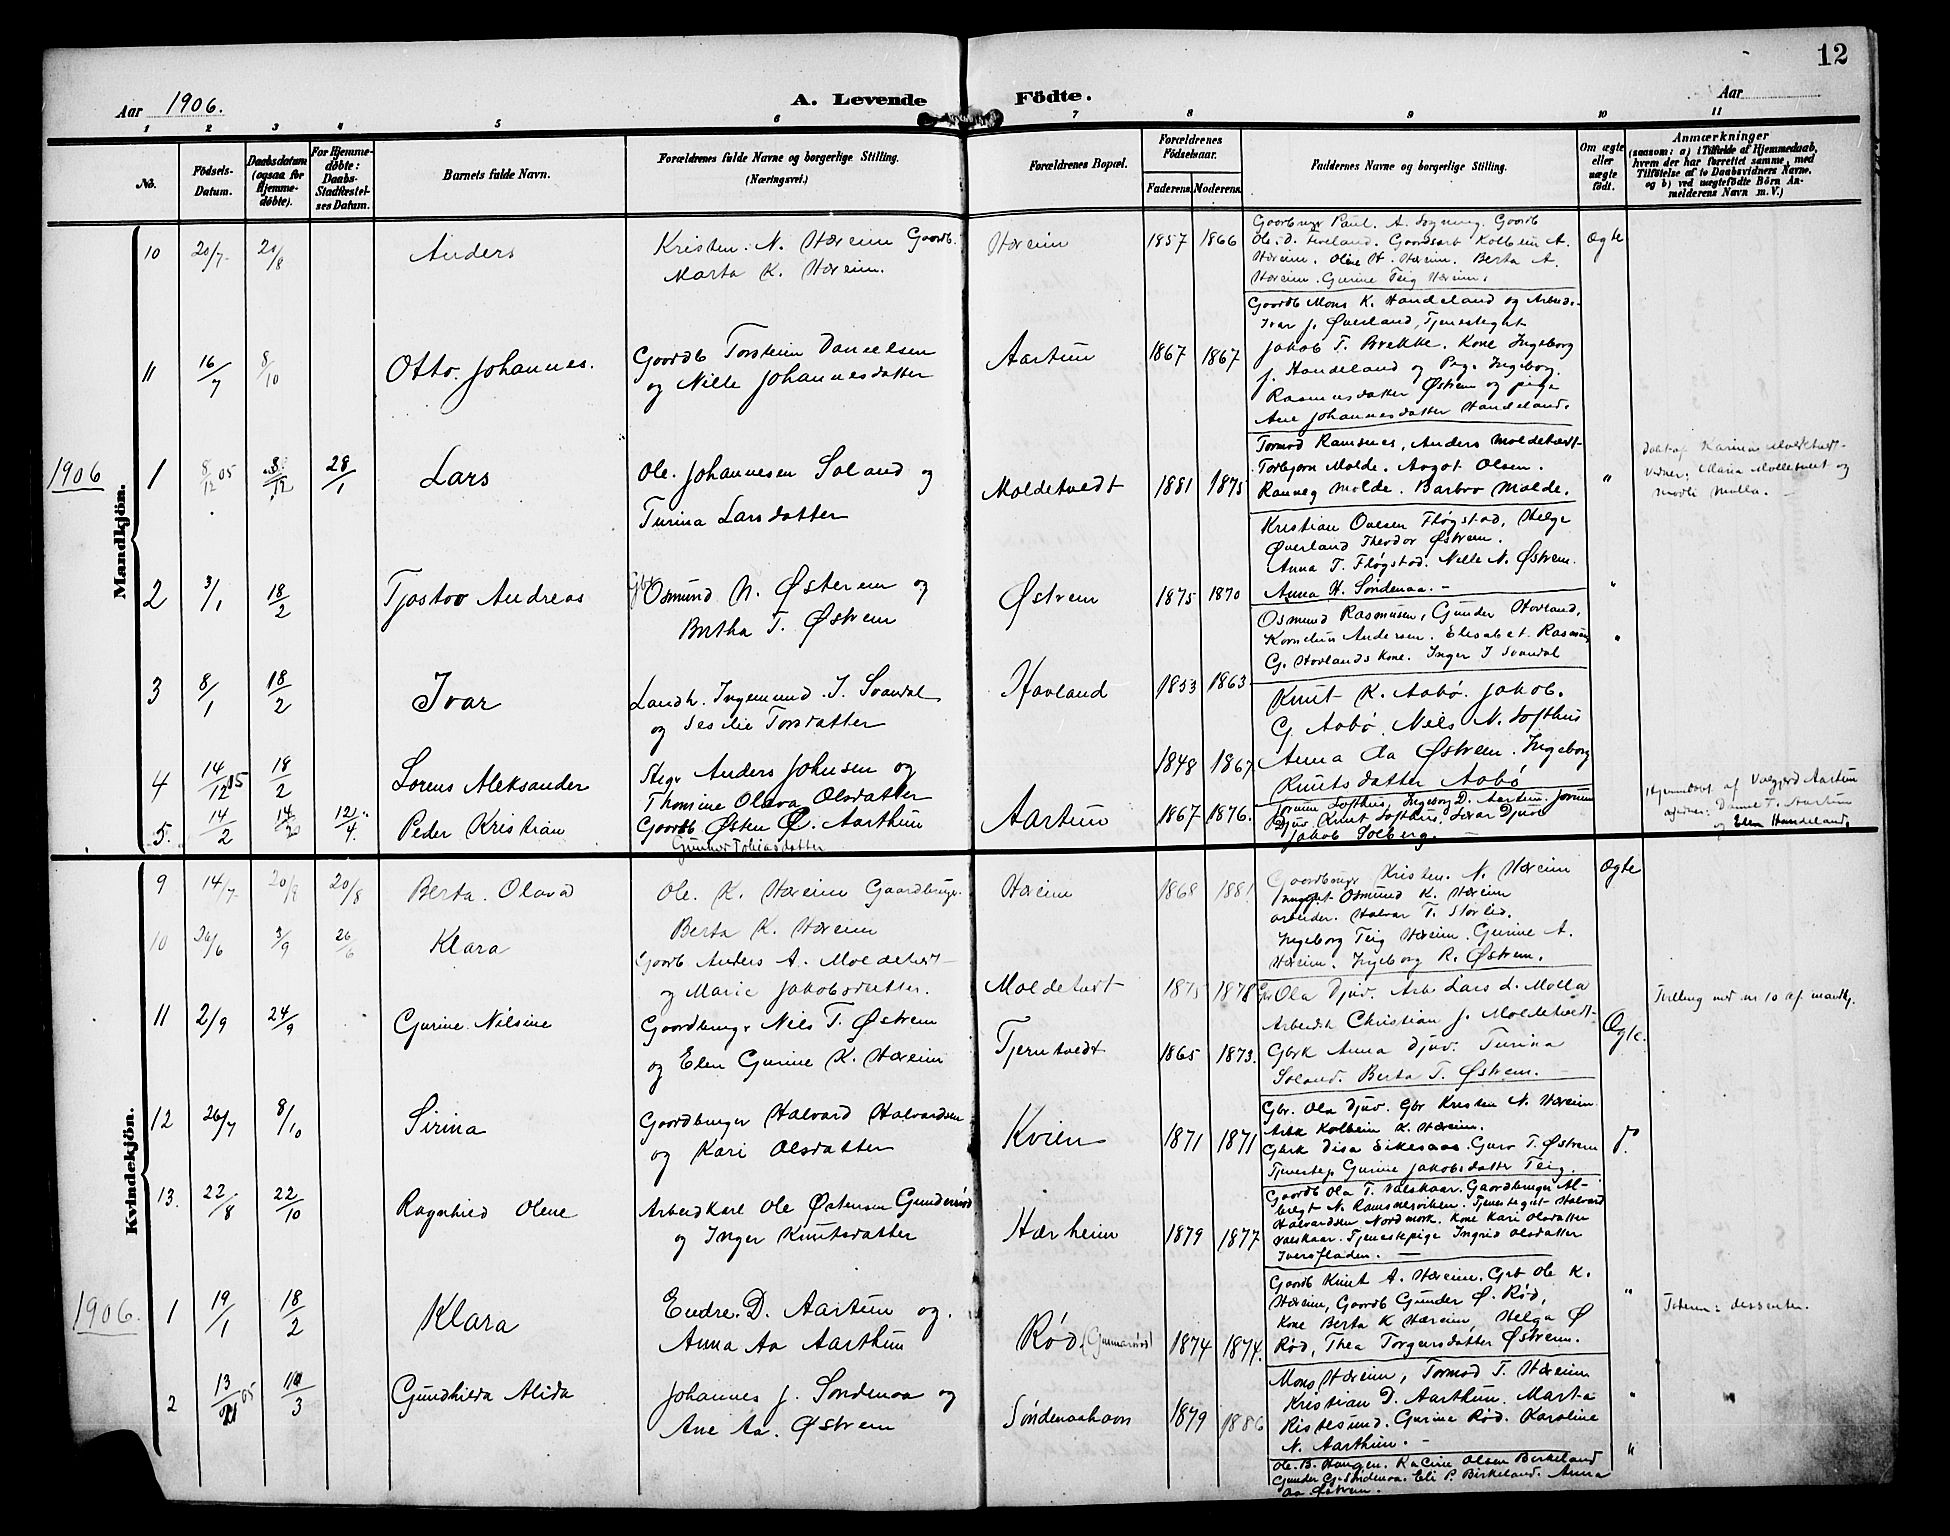 12
Aar 1906. A. Levende Födte. Aar
1 2 3 4 5 6 7 8 9 10 11
No.
Födsels-
Datum.
Daabsdatum
(ogsaa for
Hjemme-
döbte).
For Hjemme-
döbte:
Daabs-
Stadfæstel-
ses Datum.
Barnets fulde Navn.
Forældrenes fulde Navne og borgerlige Stilling.
(Næringsvei.)
Forældrenes Bopæl.
Forældrenes
Födselsaar.
Faderens. Moderens.
Faddernes Navne og borgerlige Stilling.
Om ægte
eller
uægte
födt.
Anmærkninger
(saasom: a) i Tilfælde af Hjemmedaab,
hvem der har forrettet samme, med
Tilföielse af to Daabsvidners Navne,
og b) ved uægtefödte Börn An-
melderens Navn m. V.)
Mandkjön.
10 20/7 20/8 Anders
Kristen. N. Hæreim Gaardb.
Marta K. Hæreim.
Hæreim 1857 1866
Gaardbruger Paul. A. Sogning. Gaardb
Ole. D. Foeland. Kolbein A.
Hæreim. Oline H. Hæreim. Berta A.
Hæreim. Gurine Teig Hæreim.
Ægte
11 16/7 8/10 Otto. Johannes.
Gaardb Torsteim Danielsen
og Nille Johannesdatter
Aartun 1867 1867
Gaardb Mons K. Handeland og Arbeids.
Ivar J. Øverland, Tjenestegut
Jakob T. Brekke. Kone Ingeborg
J. Handeland og Pige Ingeborg.
Rasmusdatter Østrem og pige
Ane Johannesdatter Handeland.
1906
1 8/12 05 8/12 28/1 Lars
Ole. Johannesen Soland og
Turina Larsdatter
Moldetvedt 1881 1875
Tormod Ramsnes, Anders Moldetvedt-
Torbjørn Molde. Aagot Olsen.
Ranveg Molde. Barbro Molde.
"
Døbt af Karina Moldetvedt-
Vidner: Maria Molletveet og
Molla. -
2 3/1 18/2 Tjostov Andreas
Gbr Osmund N. Østerem og
Bertha T. Østrem
Østrem 1875 1870
Kristian Ovesen Fløgstad, Helge
Øverland Theodor Østrem.
Anna T. Fløgstad. Nille N. Østrem.
Anna H. Søndenaa. -
"
3 8/1 18/2 Ivar
Landh. Ingemund. I. Svandal
og Torsdatter
Havland 1853 1863
Osmund Rasmusen, Gunder Hovland,
Kornelius Andersen. Elisabet. Rasmus
G. Hovlands Kone. Inger I Svandal
"
4 14/12 05 18/2 Lorens Aleksander
Anders Johnsen og
Thomine Olava Olsdatter
1848 1867
Knut K. Aabø. Jakob.
G. Aabø. Niels N. Softhus
Anna Aa Østrem. Ingeborg
Knutsdatter Aabø
5. 14/2 14/2 12/4. Peder Kristian
Gaardb Østen Ø. Aarthun
Gunhor Tobiasdatter
Aartun 1867 1876.
Softhus, Ingeborg D. Aartun
Djuv Knut Softhus, Ivar Djuv
Jakob Solberg. -
Hjemmedøbt af Valgjerd Aartun
Daniel T. Aartun
og Elen Handeland.
Kvindekjön.
9 14/7 20/8 20/8 Berta. Olava
Ole. K. Hæreim Gaardbruger.
Berta K. Hæreim
Hæreim 1868 1881
Gaardbruger Kristen. N. Hæreim
Osmund K. Hæreim
arbeider. Halvar T. Storlid.
Ingeborg Teig Hæreim. Gurine A.
Hæreim. Ingeborg R. Østrem.
Ægte
10 26/6 3/9 26/6 Klara
Gaardb Anders A. Moldetvedt
og Marie Jakobsdatter.
Moldetvedt 1875 1878
Gbr Ola Djuv. Arb. Lars L. Molla
Arbeidsk Christian J. Moldetvedt-
Gbrk Anna Djuv. Turina
Soland. Berta T. Østrem. -
Tvilling med nr 10 af mandkj.
11 2/9 24/9 Gurine Nilsine
Gaardbruger Niels T. Østrem
og Elen Gurine K. Hæreim
Tjerntvedt 1865 1873.
Ægte.
12 26/7 8/10 Sirina
Gaardbruger Halvard Halvardsen
og Kari Olsdatter
Kvien 1871 1871
Gbr. Ola Djuv. Gbr Kristen N. Hæreim
Arbk Kolbein K. Hæreim.
Gbrk Disa Eikesaas. Guro T. Østrem
Tjenestep. Gurine Jakobsdatter Teig.
13. 22/8 22/10 Ragnhild Oline
Arbeidkarl Ole Østensen Gundersrød
og Inger Knutsdatter
Hærheim 1879 1877
Gaardb Ola T. Valskaar. Gaardbruger Al-
bregt N. Ramsnesviken. Tjenestegut Halvard
Halvardsen Nordmork. Kone Kari Olsdatter
Valskaar. Tjenestepige Ingrid Olsdatter
Iversfladen. -
1906.
1 19/1 18/2 Klara
Endre. D. Aartun og.
Anna Aa Aarthun
Rød (Gunnarsrød) 1874 1874.
Gaardb Knut A. Hæreim. Grb Ole K.
Hæreim, Gaardb Gunder Ø. Rød,
Kone Berta K Hæreim, Helga Ø
Rød, Thea Torgersdatter Østrem.
"
Faderen: dissenter.
2 13/ 05 /3 Gundhilda Alida
Johannes J. Søndenaa og
Ane Aa. Østrem
Søndenaahavn 1879 1886
Mons Hæreim, Tormod T. Hæreim
Kristian D. Aarthun. Marta
Ristesund. Gurine Rød. Karoline
N. Aarthun. -
"
Ole. B. Haugen. Olsen Birkeland
Gunder G. Søndenaa. Eli P. Birkeland. Anna
Aa. Østrem.
"